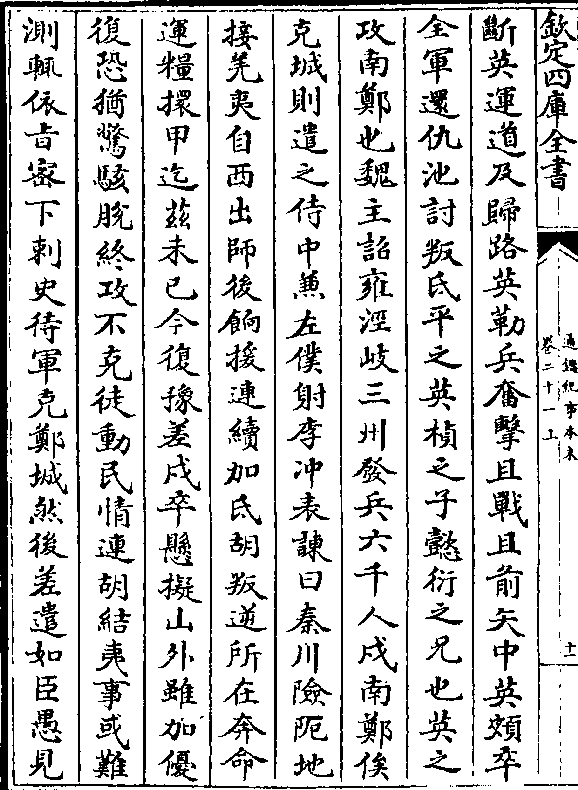 欽定四庫全書
通鑑紀事本末
卷二十一上
十一
斷英運道及歸路英勒兵奮擊且戰且前矢中英頰卒
全軍還仇池討叛氐平之英楨之子懿衍之兄也英之
攻南鄭也魏主詔雍涇岐三州發兵六千人戍南鄭俟
克城則遣之侍中兼左僕射李沖表諫曰秦川險阨地
接羌夷自西出師後餉援連續加氐胡叛逆所在奔命
運糧擐甲迄兹未已今復豫差戍卒懸擬山外雖加優
復恐猶驚駭脫終攻不克徒動民情連胡結夷事或難
測輒依旨密下刺史待軍克鄭城然後差遣如臣愚見